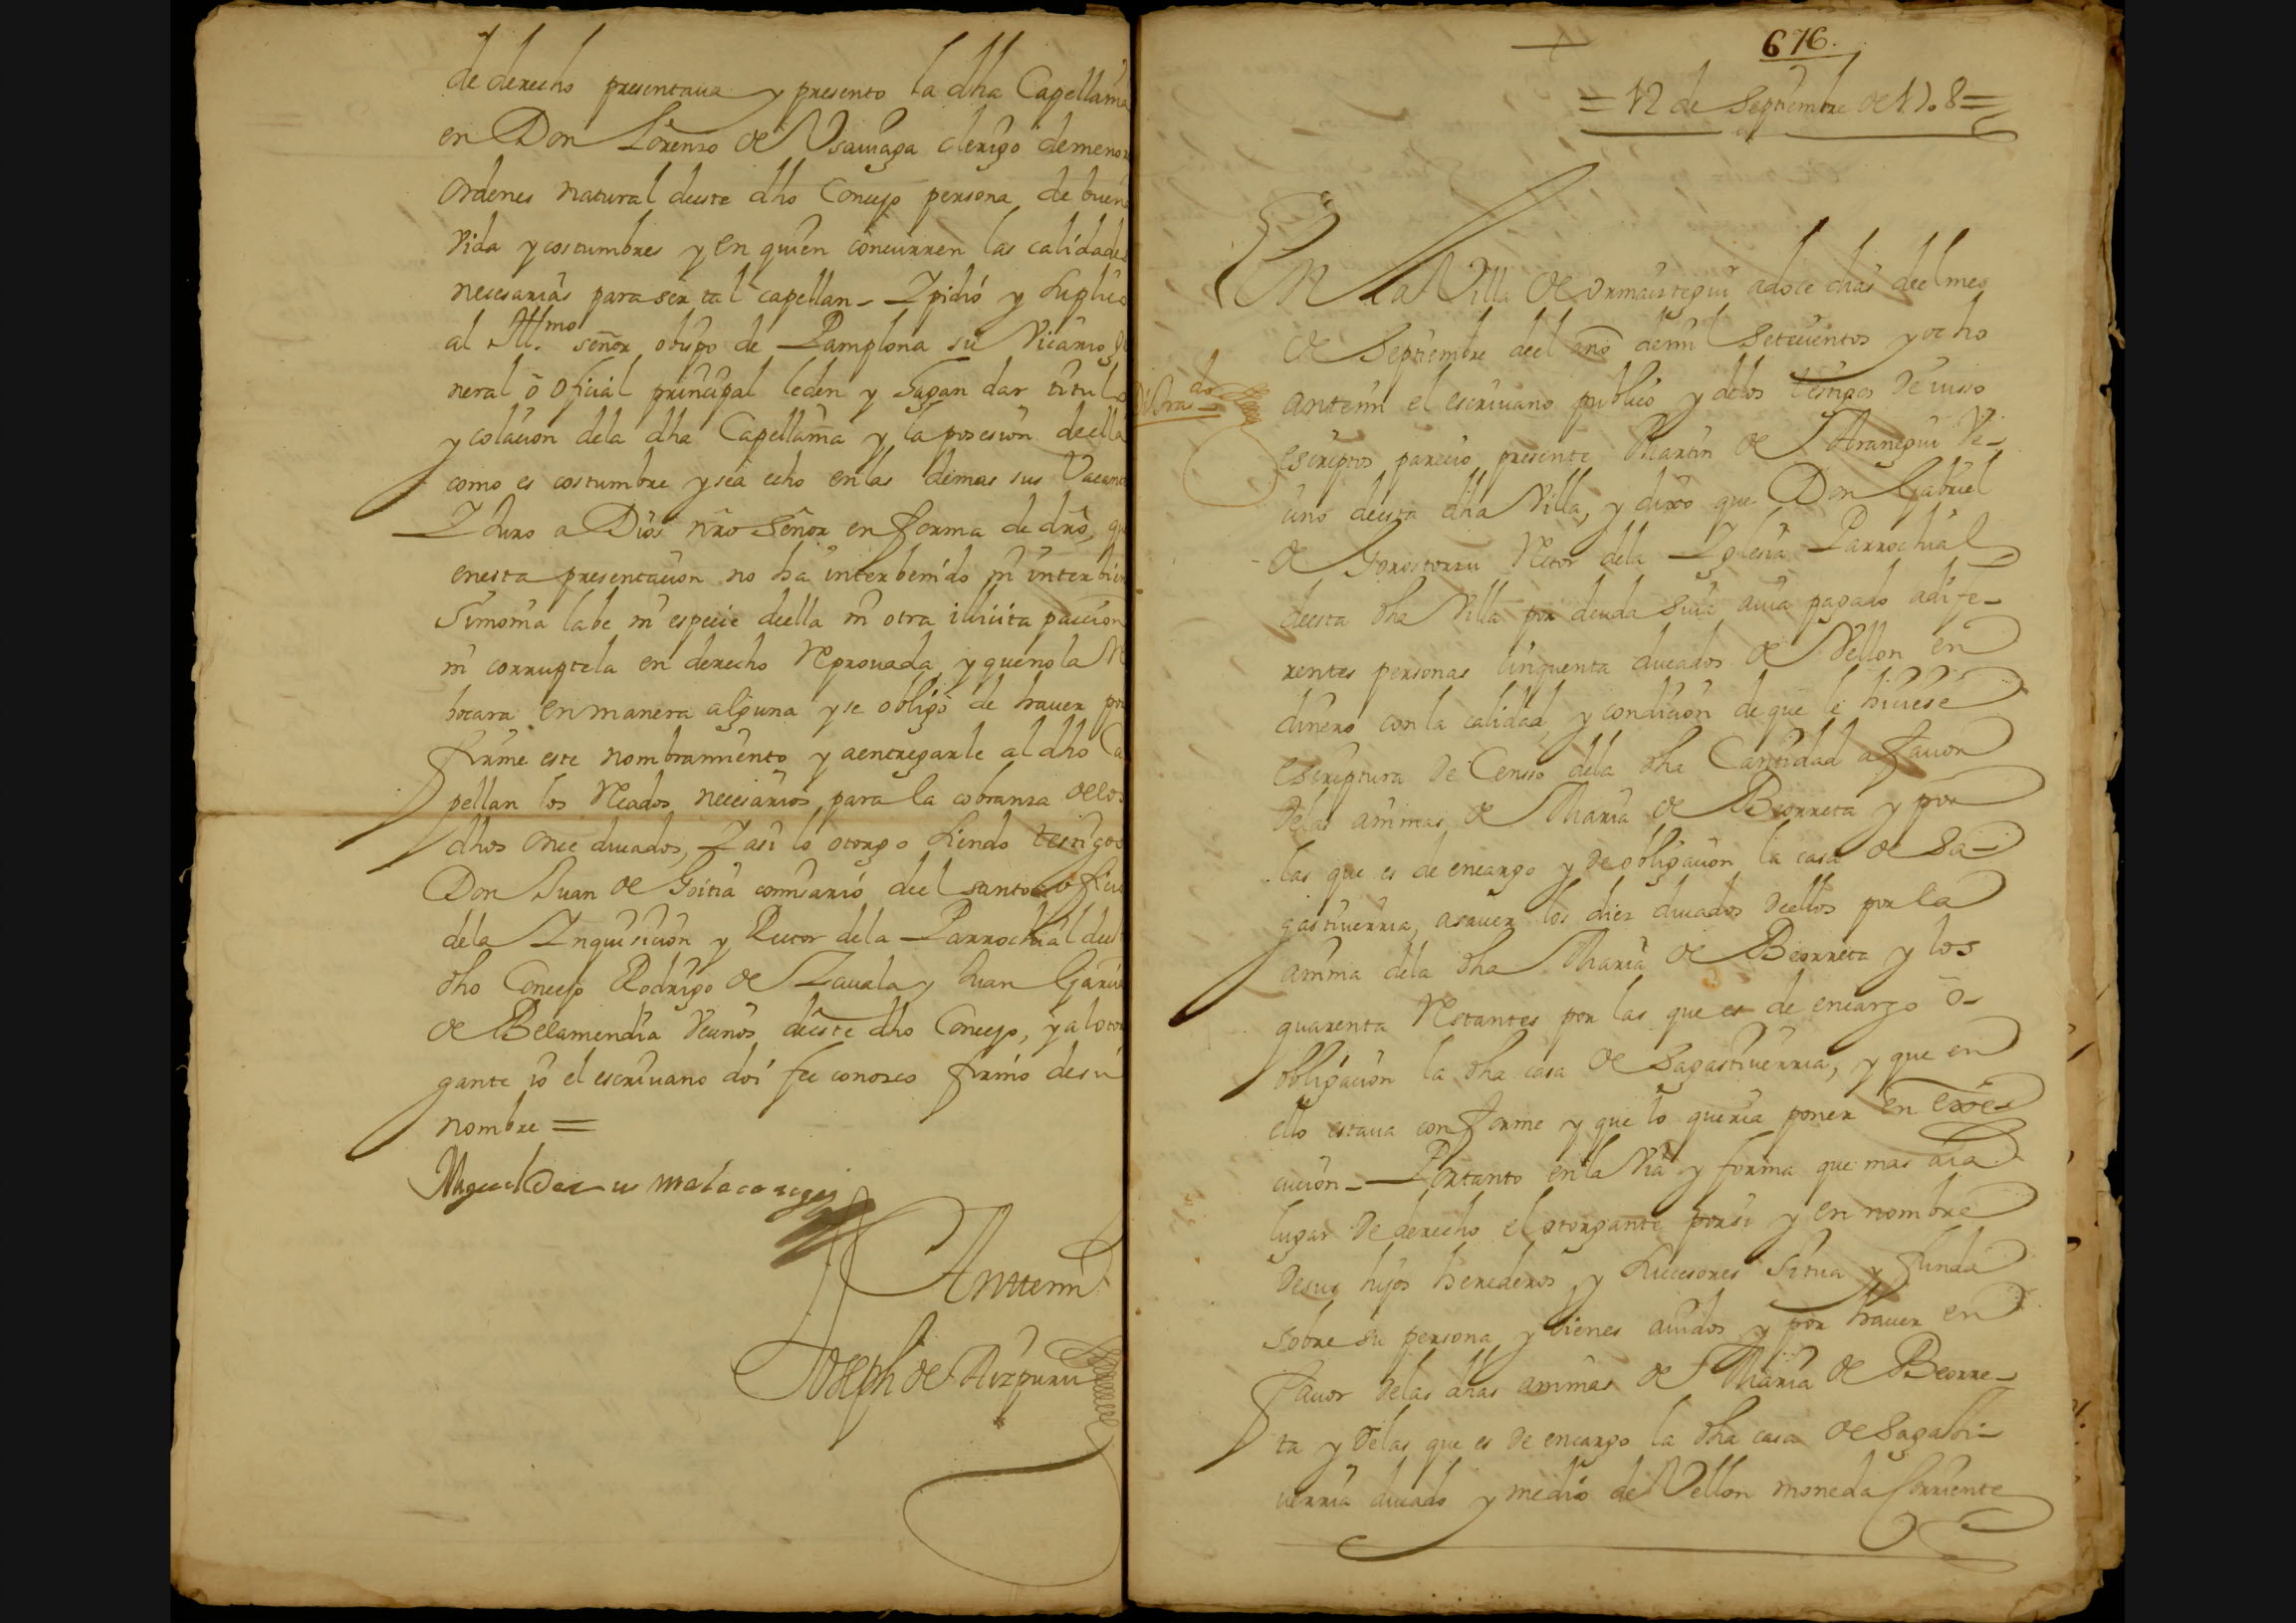 de derecho presentaua y presento la dha Capellania
en Don Lorenzo de Vsauiaga clerigo de menor
ordenes natural deeste dho Concejo persona de buena
Vida y costumbres y en quien concurren las calidades
necesarias para ser tal capellan - Y pidió y suplico
al Ill.mo señor obispo de Pamplona su Vicario Ge
neral ó oficial principal le den y hagan dar titulo
y colacion dela dha Capellania y la posesion deella
como es costumbre y sea echo en las demas sus Vacant
Y Juro a Dios nro Señor en forma de dro, que
enesta presentacion no ha interbenido ni interbien
Simonia labe ni especie deella ni otra illicita paccion
ni corruptela en derecho Reprouada, y que no la Re
bocara en manera alguna y se obligó de hauer por
firme este nombramiento y a entregarle al dho Ca
pellan los Recados necesarios para la cobranza de los
dhos once ducados, Y asi lo otorgo siendo testigos
Don Juan de Goitia comisario deel santo oficio
dela Inquisicion y Rector dela Parrochial deeste
dho Concejo Rodrigo de Zauala y Juan Garcia
de Belamendia Vecinos deeste dho Concejo, y al otor
gante io el escriuano doi fee conozco firmó de su
nombre =
Miguel
Anttemi
Joseph de Aizpuru
676.
= 12 de Septiembre de 1708 =
En La Villa de Ormaiztegui a doce dias deel mes
de Septiembre deel año de mil Setecientos y ocho
antemi el escriuano publico y delos testigos de iusso
escriptos parecio presente Martin de Aranegui Ve-
cino deesta dha Villa, y dixo que Don Gabriel
de Gorostorzu Retor dela Yglesia Parrochial
deesta dha Villa por deuda suia auia pagado a dife-
rentes personas cinquenta ducados de Vellon en
dinero con la calidad, y condicion de que le hiciese
escriptura de Censso dela dha Cantidad a fauor
delas animas de Maria de Beorreta y por
las que es de encargo y de obligacion la casa de Sa-
gastiuerria, asauer los diez ducados deellos por la
anima dela dha Maria de Beorreta y los
quarenta Restantes por las que es de encargo o-
obligacion la dha casa de Sagastiuerria, y que en
ello estaua conforme y que lo queria poner en exoe-
cucion - Portanto en la Via y forma que mas aia
lugar de derecho el otorgante por si y en nombre
desus hijos herederos y subcesores Situa y funda
sobre su persona y bienes auidos y por hauer en
fauor delas dhas animas de Maria de Beorre-
ta y delas que es de encargo la dha casa de Sagasti-
uerria ducado y medio de Vellon moneda Corriente